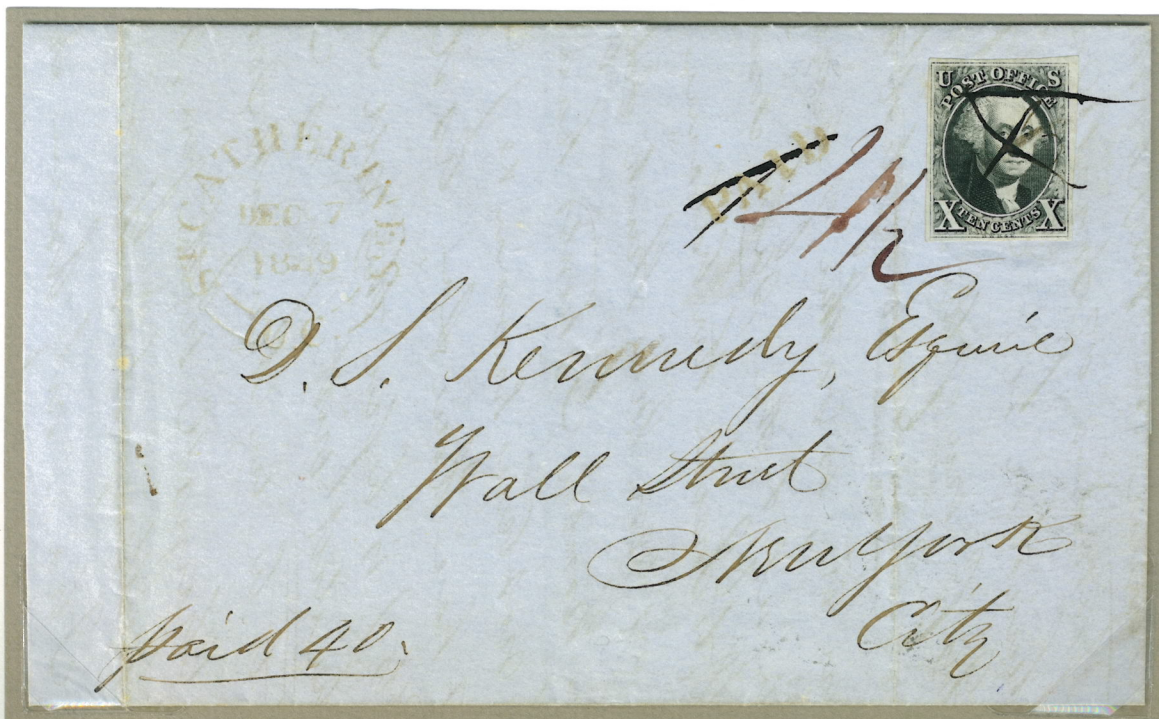 U S
POST OFFICE
X TEN CENTS X
PAID
4½
ST CATHERINES
DEC 7
1849
D. S. Kennedy, Esquire
Wall Street
New York
City
paid 40.